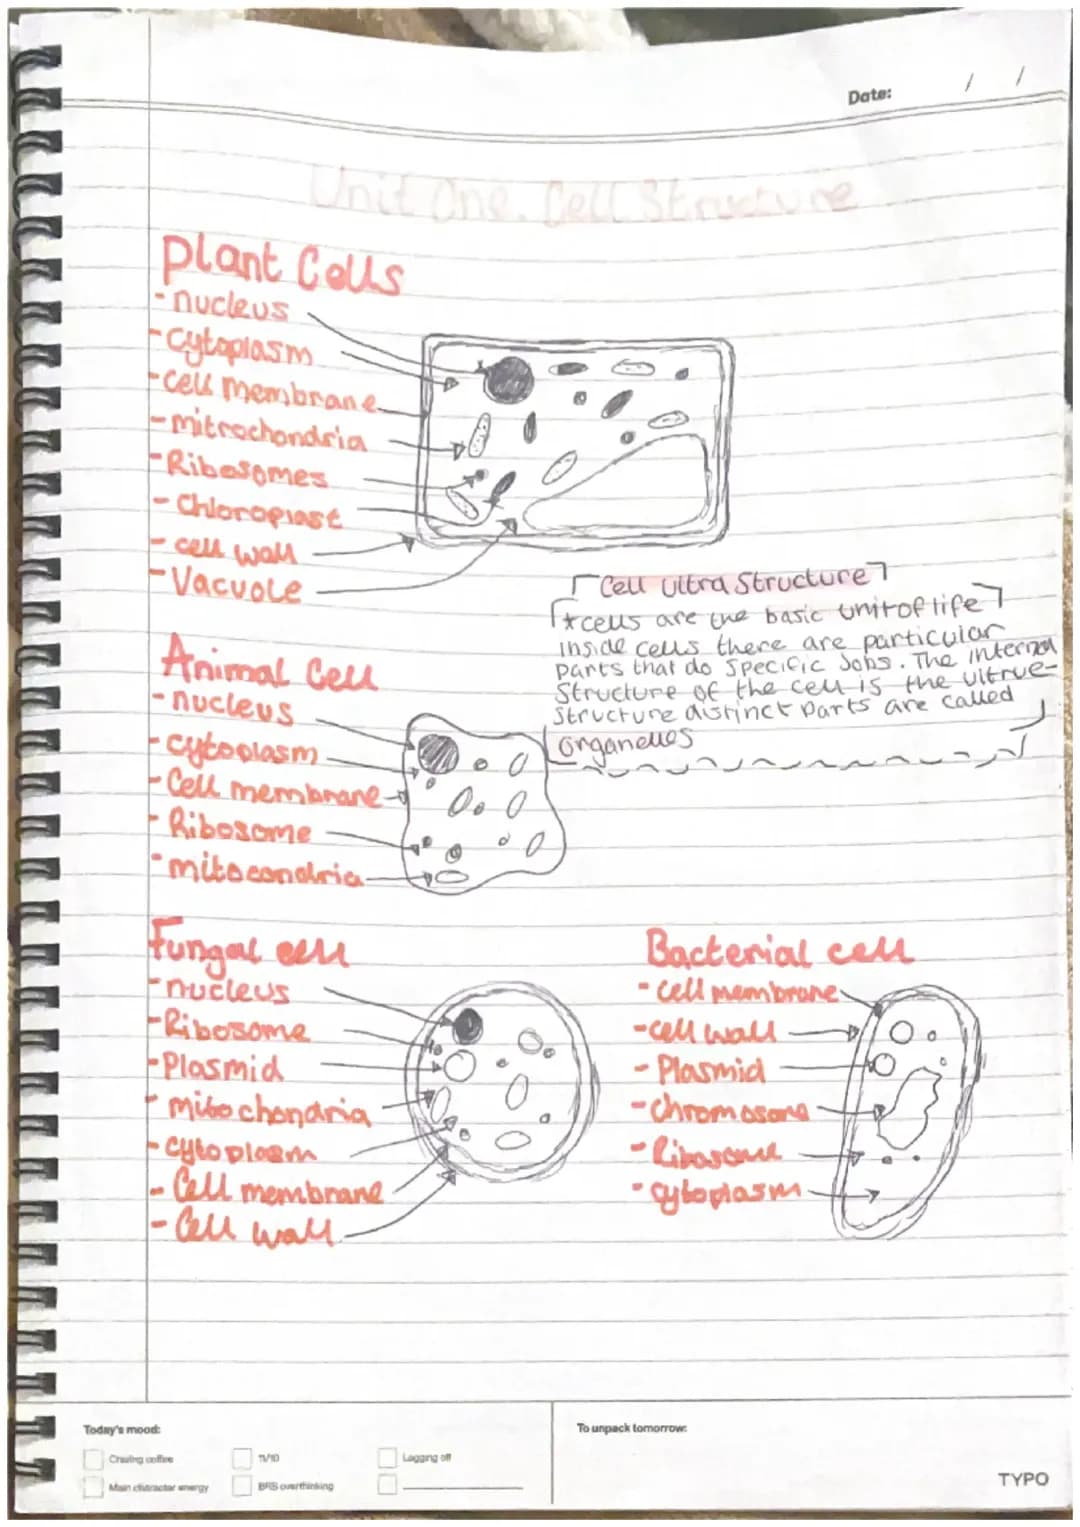 Date: / /
Unit One. Cell Structure
Plant Cells
- nucleus
- Cytoplasm
- Cell membrane
- mitrochondria
- Ribosomes
- Chloroplast
- cell wall
- Vacuole
Cell Ultra Structure
* cells are the basic unit of life
inside cells there are particular
parts that do specific Jobs. The internal
Structure of the cell is the ultrue-
structure distinct parts are called
organelles
Animal Cell
- nucleus
- cytoplasm
- Cell membrane
- Ribosome
- mitocondria
Fungal cell
- nucleus
- Ribosome
- Plasmid
- mitochondria
- cytoplasm
- Cell membrane
- Cell wall
Bacterial cell
- cell membrane
- cell wall
- Plasmid
- Chromosome
- Ribosome
- cytoplasm
Today's mood:
Craving coffee
11/10
Logging off
Main character energy
BRB overthinking
To unpack tomorrow:
TYPO